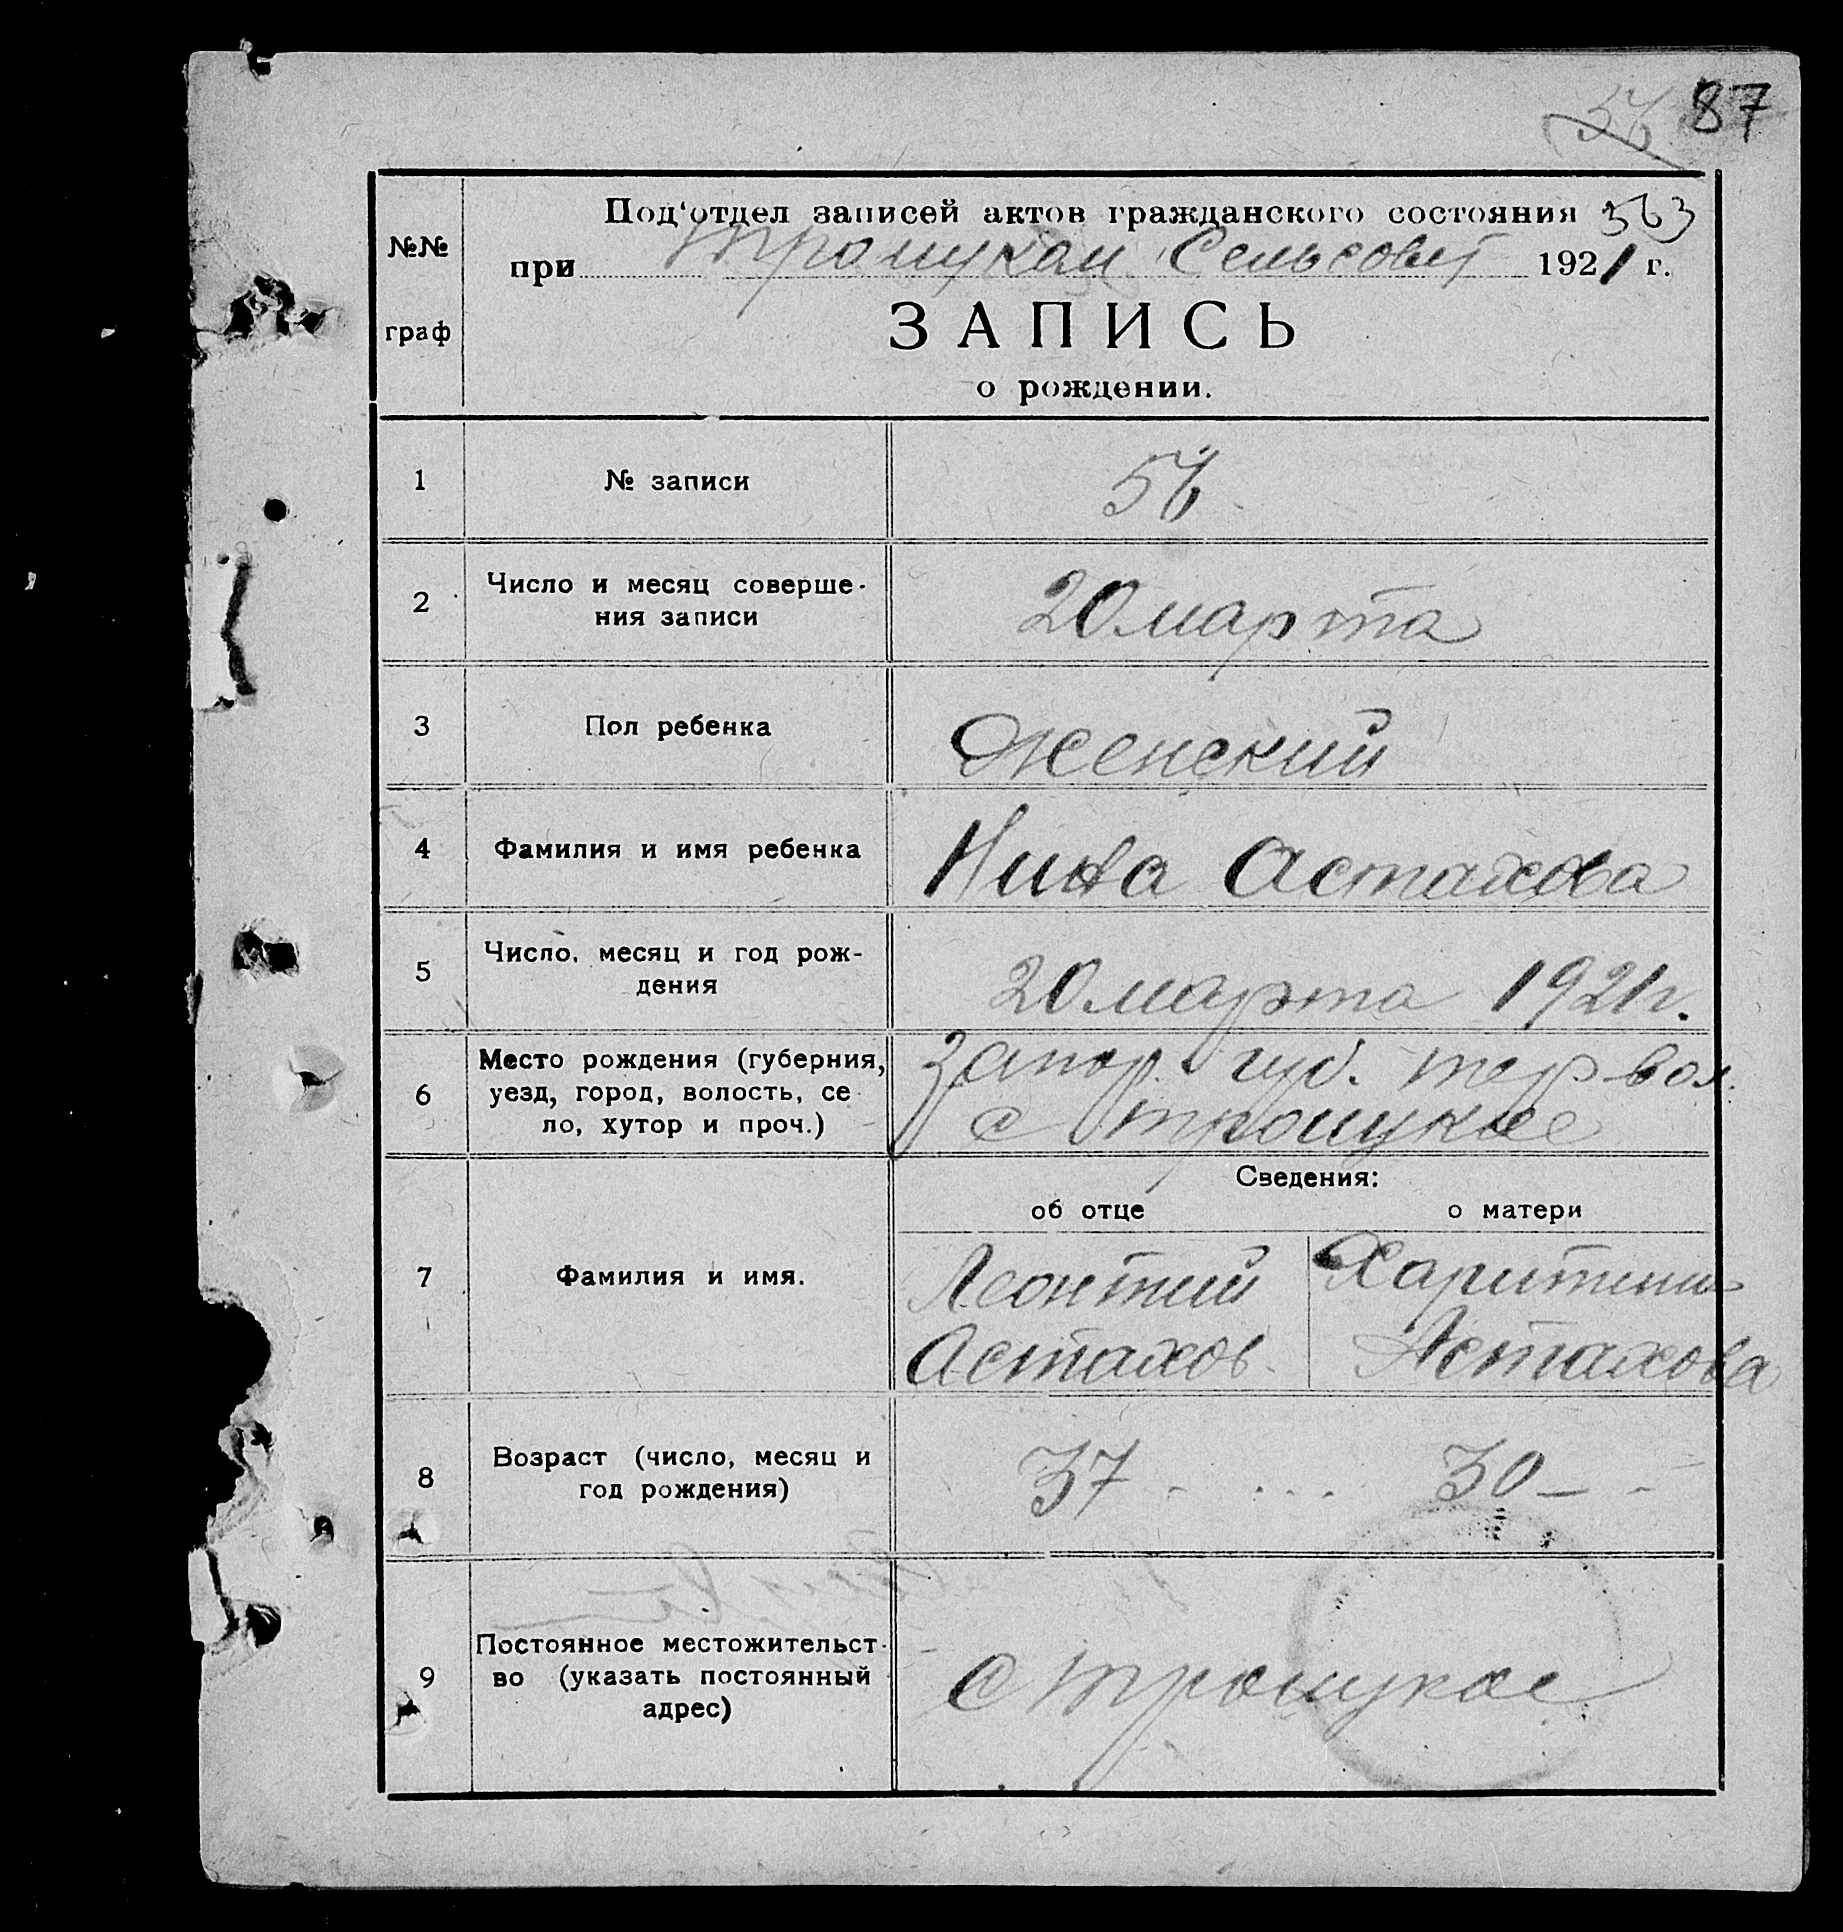 56 87
Под‘отдел записей актов гражданского состояния 563
при Троицкам Сельсовет 1921 г.
№№
граф
ЗАПИСЬ
о рождении.
1 № записи 56
2 Число и месяц соверше-
ния записи 20 марта
3 Пол ребенка Женский
4 Фамилия и имя ребенка Нина Астахова
5 Число, месяц и год рож-
дения 20 марта 1921 г.
6 Место рождения (губерния, Запор. губ. тер вол.
уезд, город, волость, се
ло, хутор и проч.) с троицкое
Сведения:
об отце о матери
7 Фамилия и имя. Леонтий Харитина
Астахов Астахова
8 Возраст (число, месяц и
год рождения) 37 - . . . 30 - -
9 Постоянное местожительст-
во (указать постоянный с троицкое
адрес)